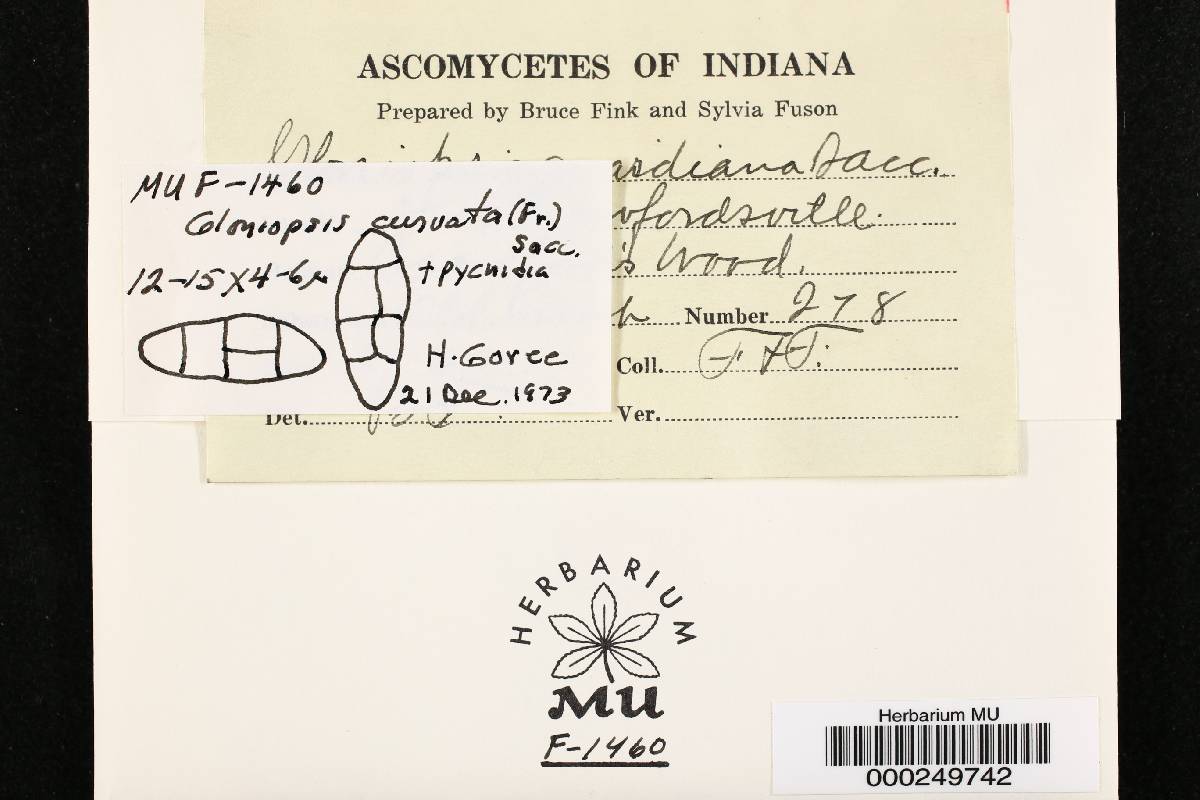 ASCOMYCETES OF INDIANA
Prepared by Bruce Fink and Sylvia Fuson
Sacc.
fordsville.
's Wood.
Number 278
Coll. F. & F.
Det.
Ver.
MU F-1460
Gloniopsis curvata (Fr.)
Sacc.
12-15 X 4-6µ
+ pycnidia
H. Goree
21 Dec. 1973
HERBARIUM
MU
F-1460
Herbarium MU
000249742